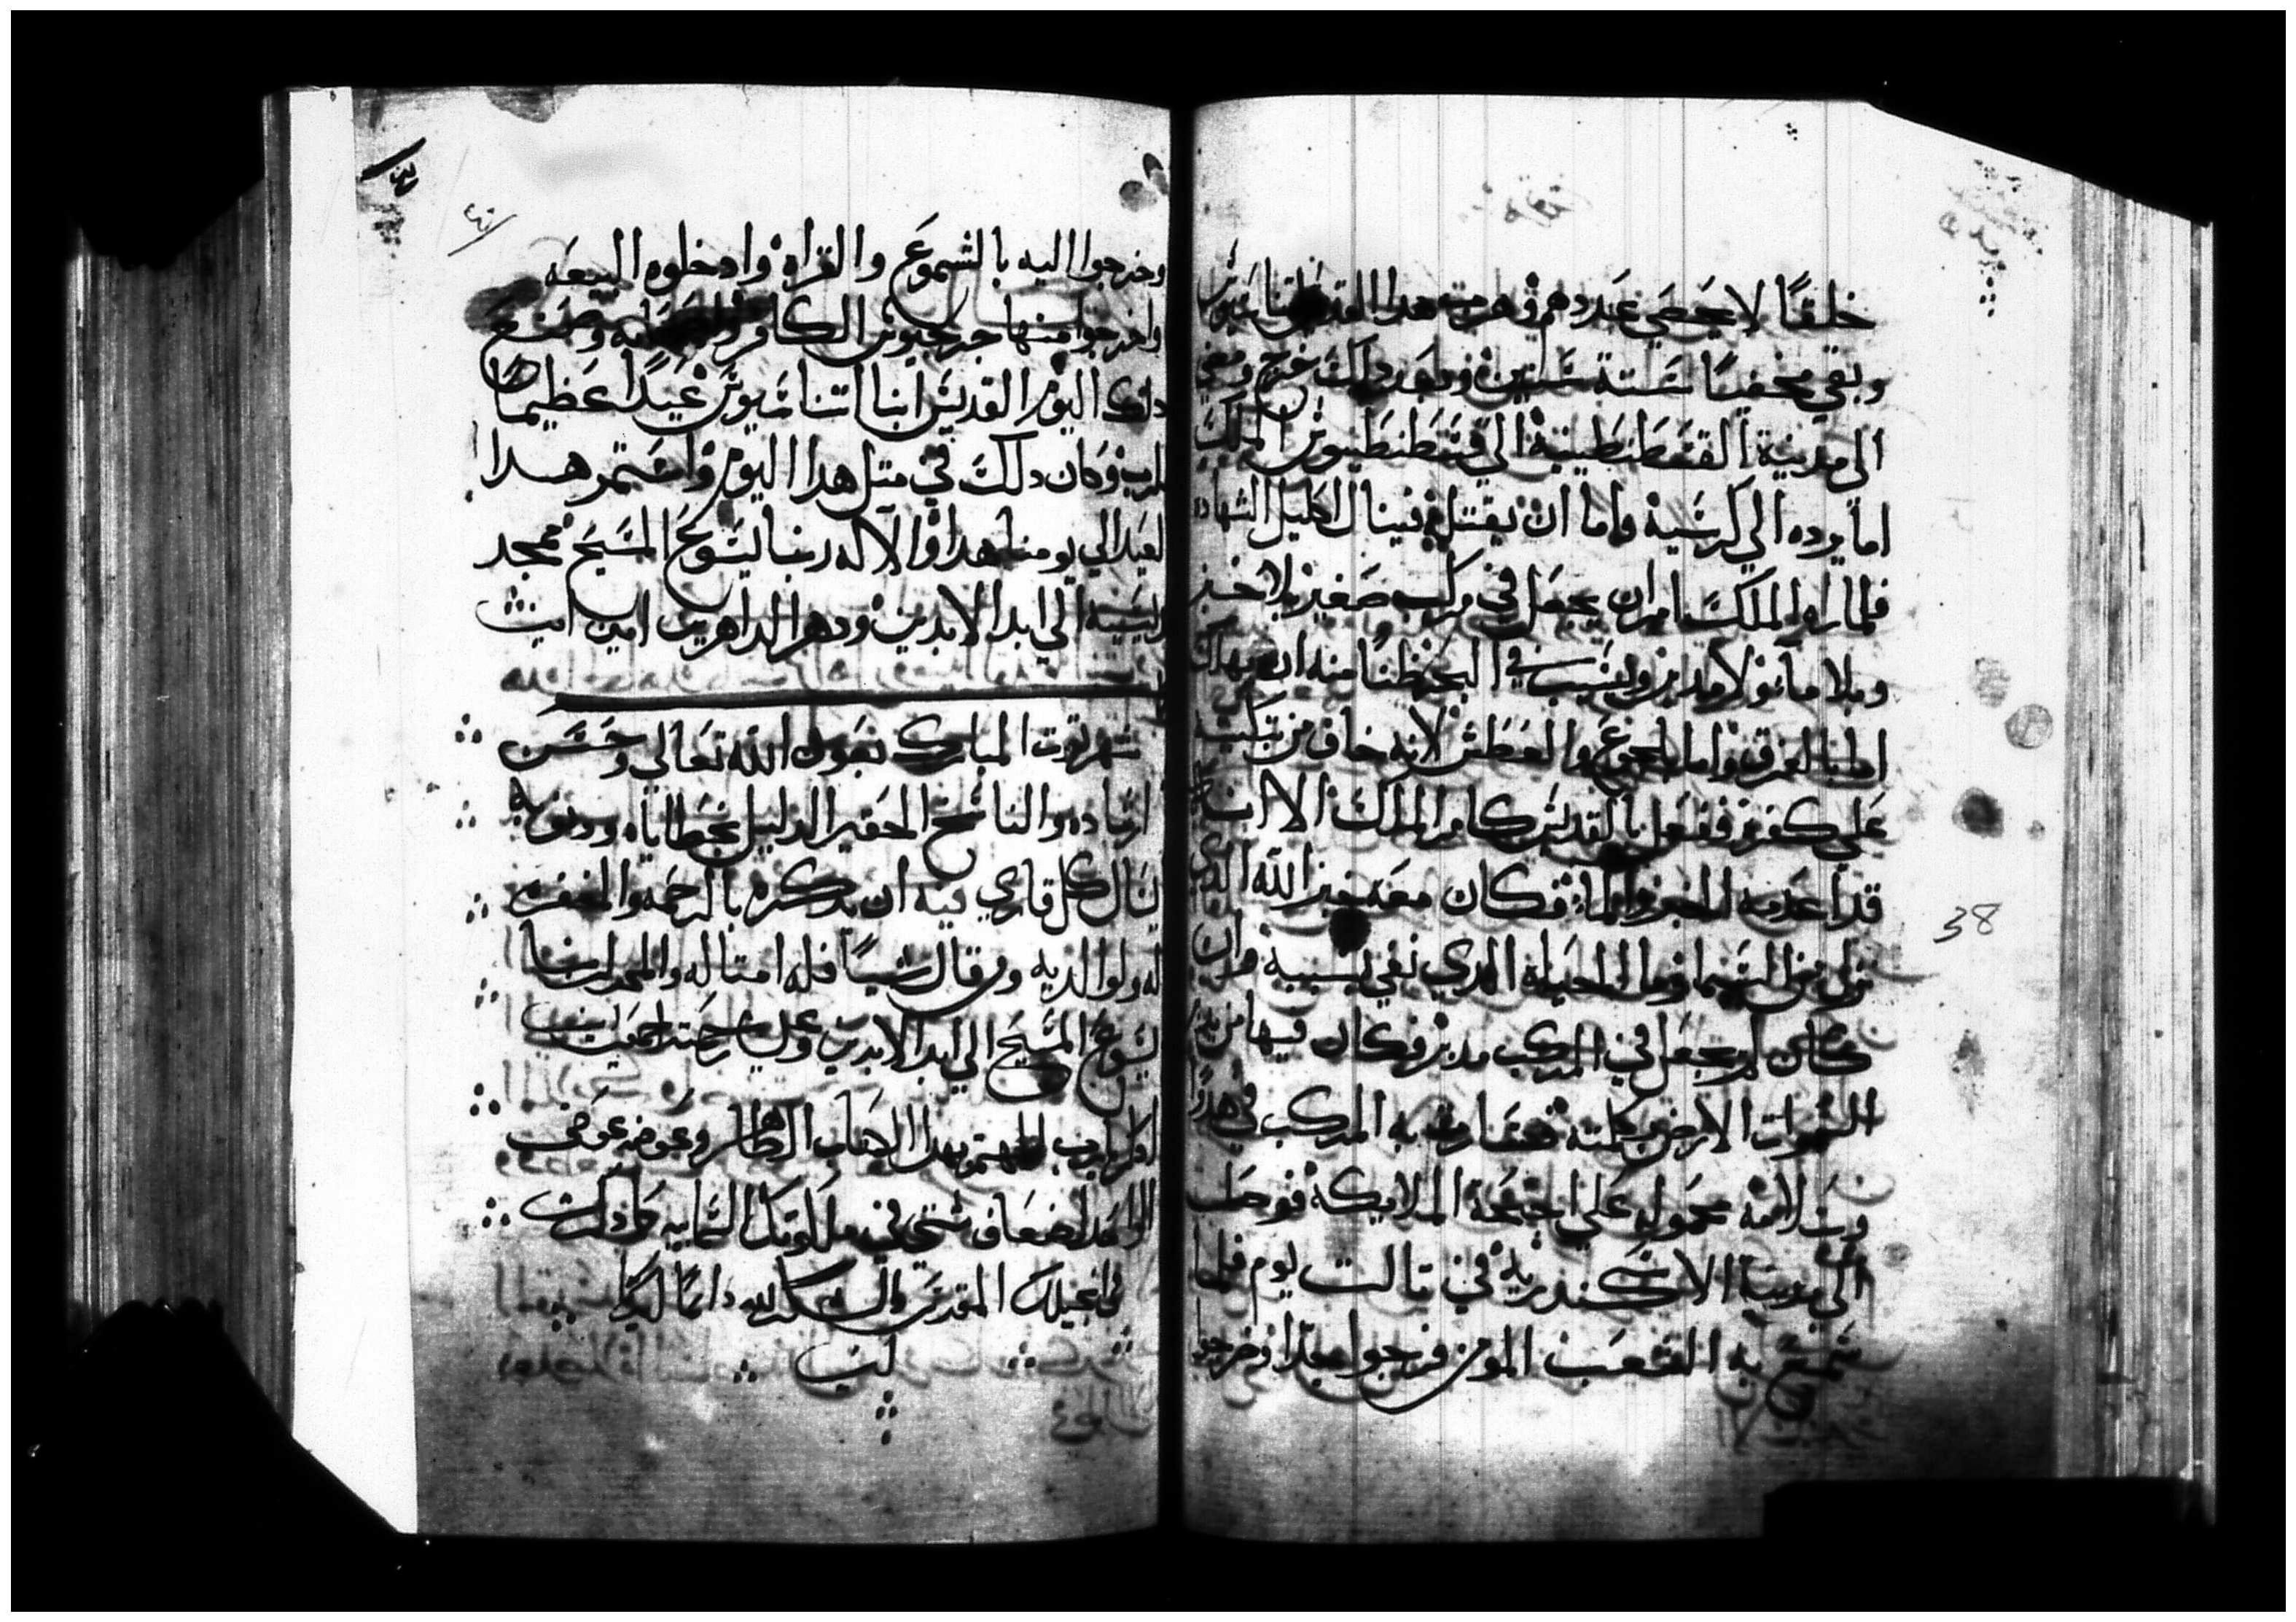 خلقًا لا يحصي عددهم وهرب هدا القديس اتناسيوس
وبقي مختفيًا ستة سنين وبعد دلك خرج ومضي
الي مدينة القسطنطينية الي قسطنطيوس الملك
اما يرده الي كرسيه واما ان يقتله فينال اكليل الشهاده
فلما راه الملك امر ان يجعل في مركب صغير بلا خبز
وبلا ما ولا مدبر ويسيب في البحر ظنًا منه ان يهلك
اما بالغرق واما بالجوع والعطش لانه خاف من تبكيته
علي كفره ففعل بالقديس كامر الملك الا انه
قد اعدمه الخبز والما فكان معه خبز الله الدي
نزل من السما وما الحياه الدي نفي بسببه وان
كان لم يجعل في المركب مدبر فكان فيها من يدبر
السموات الارض بكلمته فسارت به المركب في هدوًا
وسلامه محموله علي اجنحة الملايكة فوصل
الي مدينة الاسكندرية في تالت يوم فلما
سمع به الشعب المومن فرحوا جدًا وخرجوا
38
٤٠
وخرجوا اليه بالشموع والقراة وادخلوه البيعه
واخرجوا منها جرجيوس الكافر واصحابه وصنع
دلك اليوم القديس انبا اتناسيوس عيدًا عظيمًا
للرب وكان دلك في متل هدا اليوم واستمر هدا
العيد الي يومنا هدا والاله ربنا يسوع المسيح ممجد
قديسيه الي ابد الابدين ودهر الداهرين امين امين
شهر توت المبارك بعون الله تعالي وحسن
ارشاده والناسخ الحقير الدليل بخطاياه ودنوبه
يسال كل قاري فيه ان يدكره بالرحمه والمغفره
له ولوالديه ومن قال شيًا فله امتاله والمجد لربنا
يسوع المسيح الي ابد الابدين وعلينا رحمته اجمعين
ادكر يارب المهتم بهدا الكتاب الطاهر وعوضه عوض
الواحد اضعاف شتي في ملكوتك السماييه كما دكرت
في انجيلك المقدس والشكر لله دايمًا ابدًا
امين